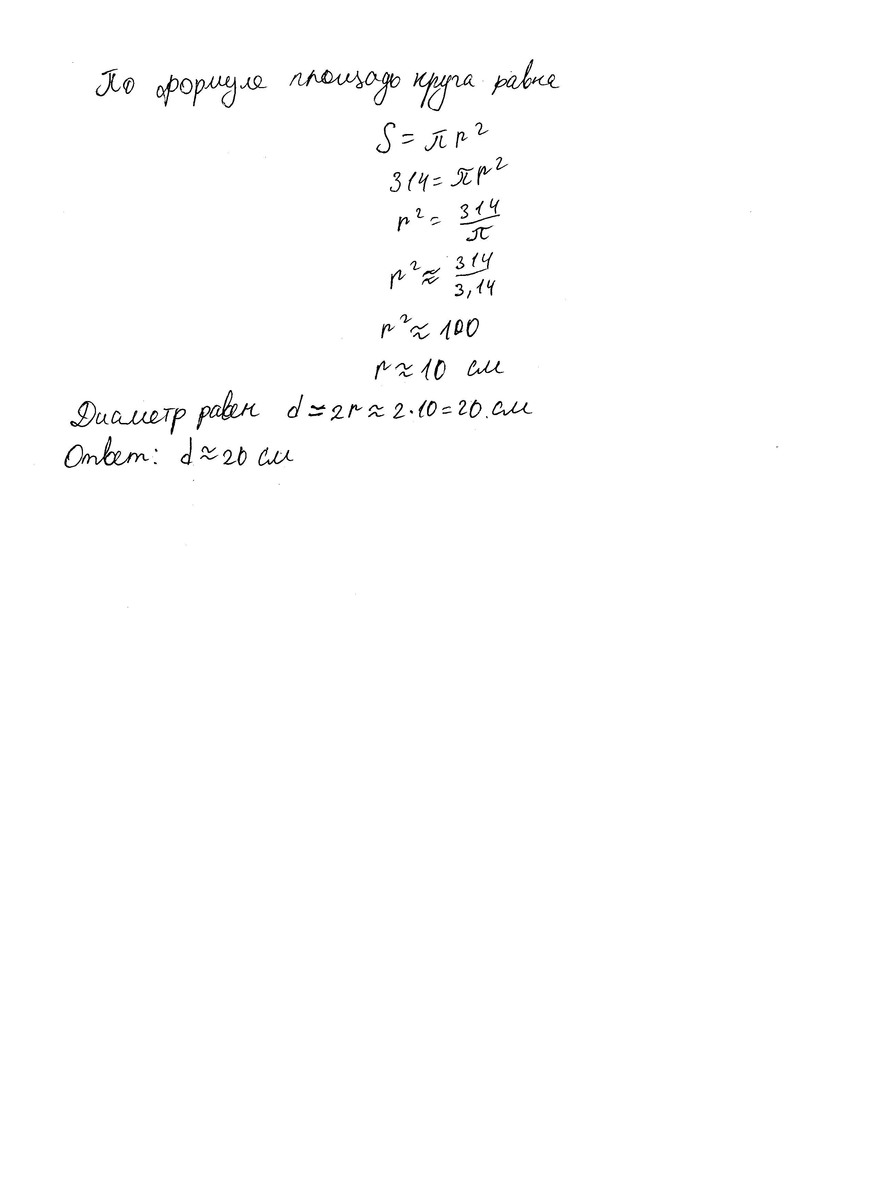 По формуле площадь круга равна
S = πr²
314 = πr²
r² = 314/π
r² ≈ 314/3,14
r² ≈ 100
r ≈ 10 см
Диаметр равен d = 2r ≈ 2·10 = 20 см
Ответ: d ≈ 20 см